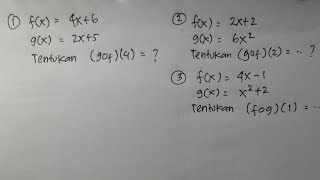 ① f(x) = 4x+6
g(x) = 2x+5
Tentukan (gof)(4) = ?
② f(x) = 2x+2
g(x) = 6x²
Tentukan (gof)(2) = ... ?
③ f(x) = 4x-1
g(x) = x²+2
Tentukan (fog)(1) = ...